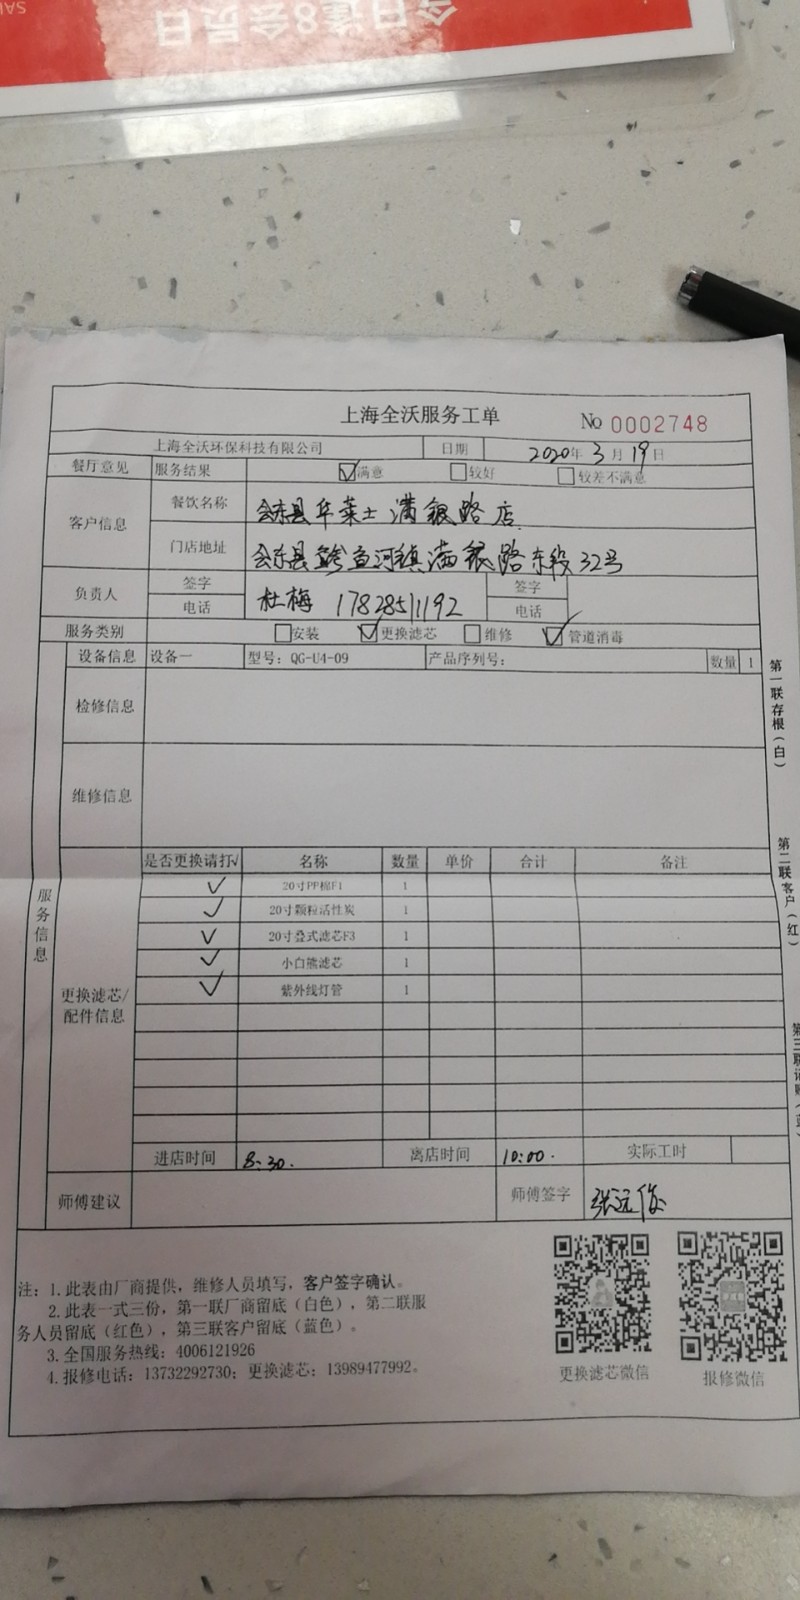 今日逢8会员日
上海全沃服务工单 No 0002748
上海全沃环保科技有限公司 日期 2020年3月19日
餐厅意见 服务结果 满意 较好 较差不满意
客户信息 餐饮名称 会东县华莱士满银路店
门店地址 会东县鲹鱼河镇满银路东段32号
负责人 签字 杜梅 签字
电话 17828511192 电话
服务类别 安装 更换滤芯 维修 管道消毒
设备信息 设备一 型号：QG-U4-09 产品序列号： 数量 1
检修信息
维修信息
服务信息
更换滤芯/配件信息
是否更换请打√ 名称 数量 单价 合计 备注
✓ 20寸PP棉F1 1
✓ 20寸颗粒活性炭 1
✓ 20寸叠式滤芯F3 1
✓ 小白熊滤芯 1
✓ 紫外线灯管 1
进店时间 8:30. 离店时间 10:00. 实际工时
师傅建议 师傅签字 张远俊
第一联存根（白）
第二联客户（红）
第三联记账（蓝）
注：1.此表由厂商提供，维修人员填写，客户签字确认。
2.此表一式三份，第一联厂商留底（白色），第二联服
务人员留底（红色），第三联客户留底（蓝色）。
3.全国服务热线：4006121926
4.报修电话：13732292730；更换滤芯：13989477992。
更换滤芯微信 报修微信